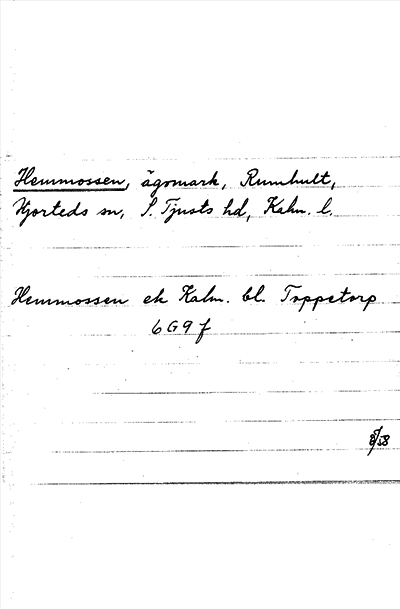 Hemmossen, ägomark, Rumhult,
Hjorteds sn, S. Tjusts hd, Kalm. l.
Hemmossen ek Kalm. bl. Toppetorp
6G9f